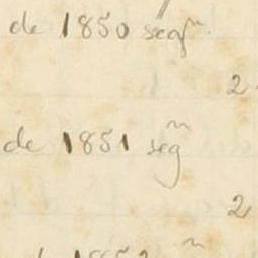 de 1850 segn
2
de 1851 segn
2